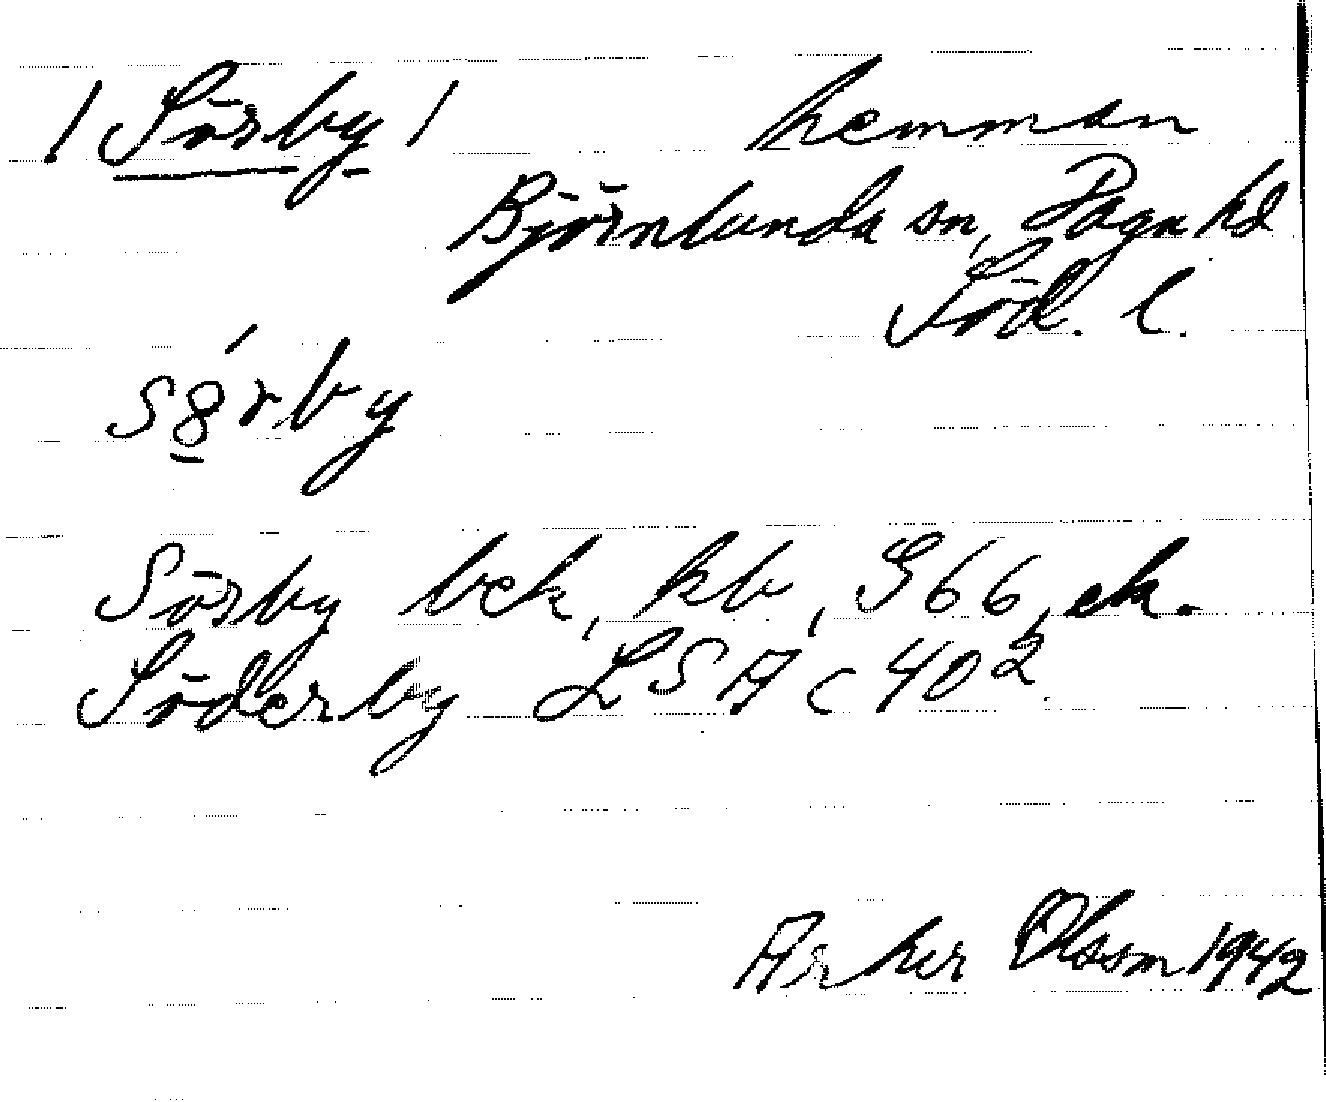 /Sörby/ hemman
Björnlunda sn, Daga hd
Söd. l.
s8́rby
Sörby bek, kb, G66, ek.
Söderby LSA C 40²
Olsson 1942